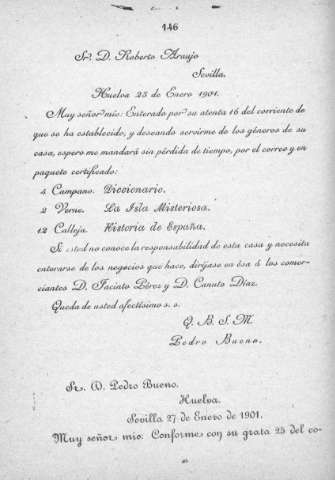 146
Sr. D. Roberto Araujo
Sevilla.
Huelva 25 de Enero 1901.
Muy señor mío: Enterado por su atenta 16 del corriente de
que se ha establecido, y deseando servirme de los géneros de su
casa, espero me mandará sin pérdida de tiempo, por el correo y en
paquete certificado:
4 Campano. Diccionario.
2 Verne. La Isla Misteriosa.
12 Calleja. Historia de España.
Si usted no conoce la responsabilidad de esta casa y necesita
enterarse de los negocios que hace, diríjase en ésa á los comer-
ciantes D. Jacinto Pérez y D. Canuto Díaz.
Queda de usted afectísimo s. s.
Q. B. S. M.
Pedro Bueno.
Sr. D. Pedro Bueno.
Huelva.
Sevilla 27 de Enero de 1901.
Muy señor mío: Conforme con su grata 25 del co-